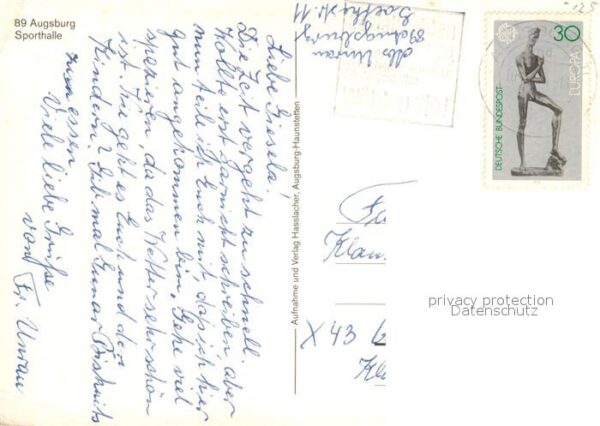 89 Augsburg
Sporthalle
Liebe Giesela,
Die Zeit vergeht zu schnell.
Wollte erst garnicht schreiben, aber
nun teile ich Euch mit, das ich hier
gut angekommen bin. Gehe viel
spazieren, da das Wetter sehr schön
ist. Wie geht es Euch und den
Kindern? Gib mal Biskuits
zum essen
Viele liebe Grüße
von Fr. Unrau
Aufnahme und Verlag Hasslacher, Augsburg-Haunstetten
Abs Unrau
89 Augsburg
Goethestr. 11
30
EUROPA
DEUTSCHE BUNDESPOST
Klau
X 43
Kla
privacy protection
Datenschutz